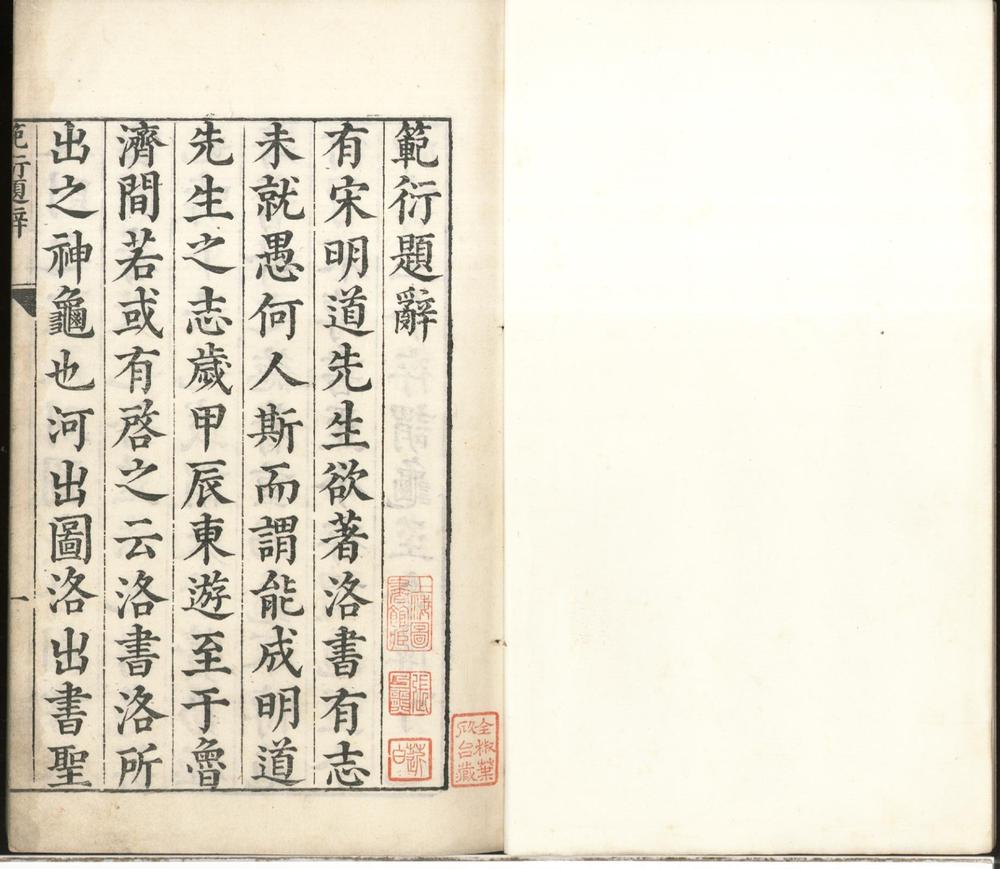 範衍題辭
有宋明道先生欲著洛書有志
未就愚何人斯而謂能成明道
先生之志歲甲辰東遊至于魯
濟間若或有啓之云洛書洛所
出之神龜也河出圖洛出書聖
範衍題辭
一
上海圖書館藏
全椒葉
欣台藏